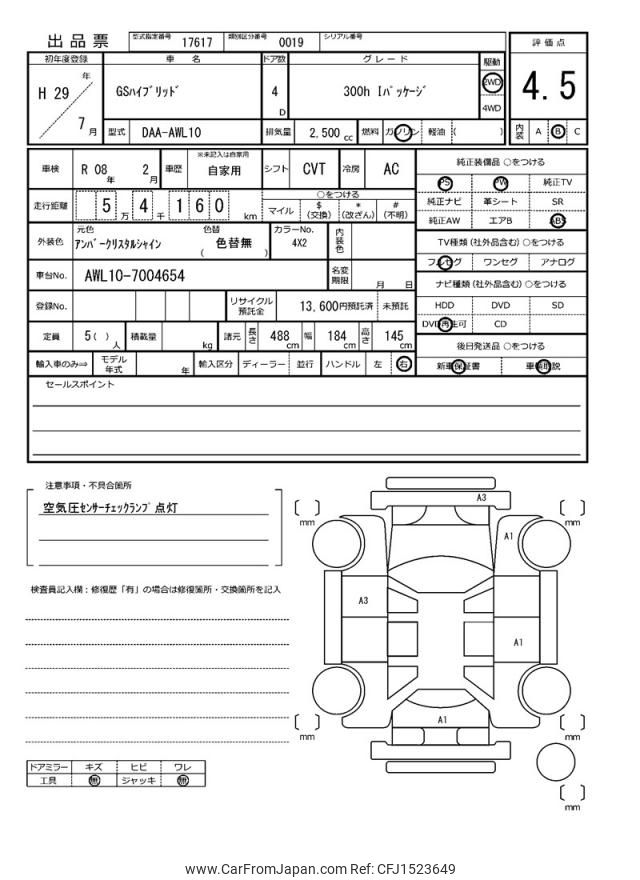 出品票
型式指定番号 17617 類別区分番号 0019 シリアル番号
評価点
4.5
内装 A B C
初年度登録 車名 ドア数 グレード 駆動
H 29 年 7 月
GSハイブリッド
4 D
300h Iパッケージ
2WD
4WD
型式 DAA-AWL10 排気量 2,500 cc 燃料 ガソリン 軽油 ( )
車検 R 08 年 2 月 車歴 ※未記入は自家用 自家用 シフト CVT 冷房 AC
走行距離 5 万 4 千 160 km
○をつける
マイル $ (交換) * (改ざん) # (不明)
外装色 元色 アンバークリスタルシャイン 色替 ( 色替無 ) カラーNo. 4X2 内装色
車台No. AWL10-7004654 名変期限 月 日
登録No. リサイクル預託金 13,600円預託済 未預託
定員 5 ( ) 人 積載量 kg 諸元 長さ 488 cm 幅 184 cm 高さ 145 cm
輸入車のみ⇒ モデル年式 年 輸入区分 ディーラー 並行 ハンドル 左 右
純正装備品 ○をつける
PS PW 純正TV
純正ナビ 革シート SR
純正AW エアB ABS
TV種類 (社外品含む) ○をつける
フルセグ ワンセグ アナログ
ナビ種類 (社外品含む) ○をつける
HDD DVD SD
DVD再生可 CD
後日発送品 ○をつける
新車保証書 車輌取説
セールスポイント
注意事項・不具合箇所
空気圧センサーチェックランプ点灯
検査員記入欄:修復歴「有」の場合は修復箇所・交換箇所を記入
ドアミラー キズ ヒビ ワレ
工具 無 ジャッキ 無
A3
mm
mm
A1
A3
A1
A1
mm
mm
mm
www.CarFromJapan.com Ref: CFJ1523649